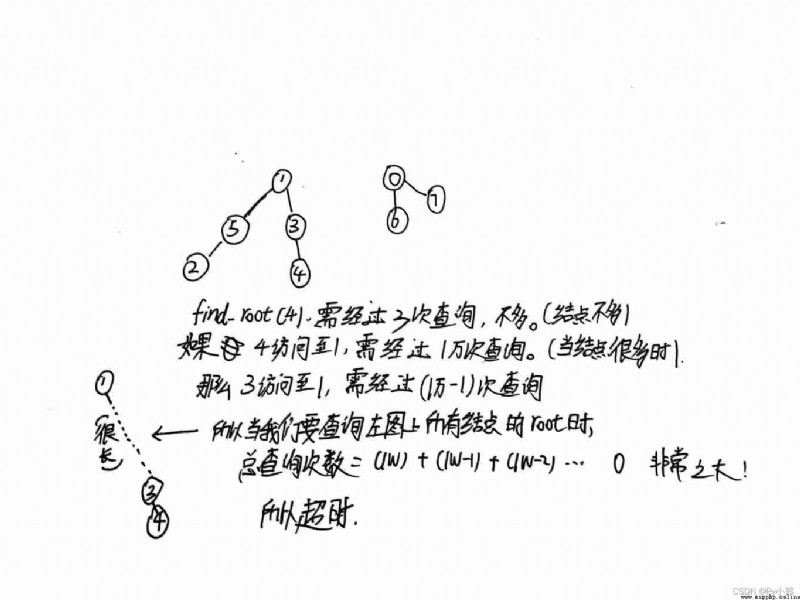 1
0
5
3
6
7
2
4
find_root(4). 需经过3次查询, 不多。(结点不多)
如果 4访问至1, 需经过1万次查询。(当结点很多时).
那么3访问至1, 需经过(1万-1)次查询
1
很长
← 所以当我们要查询左图上所有结点的root时,
总查询次数= (1W) + (1W-1) + (1W-2) … 0 非常之大!
3
4
所以超时.
www.asppbp.online